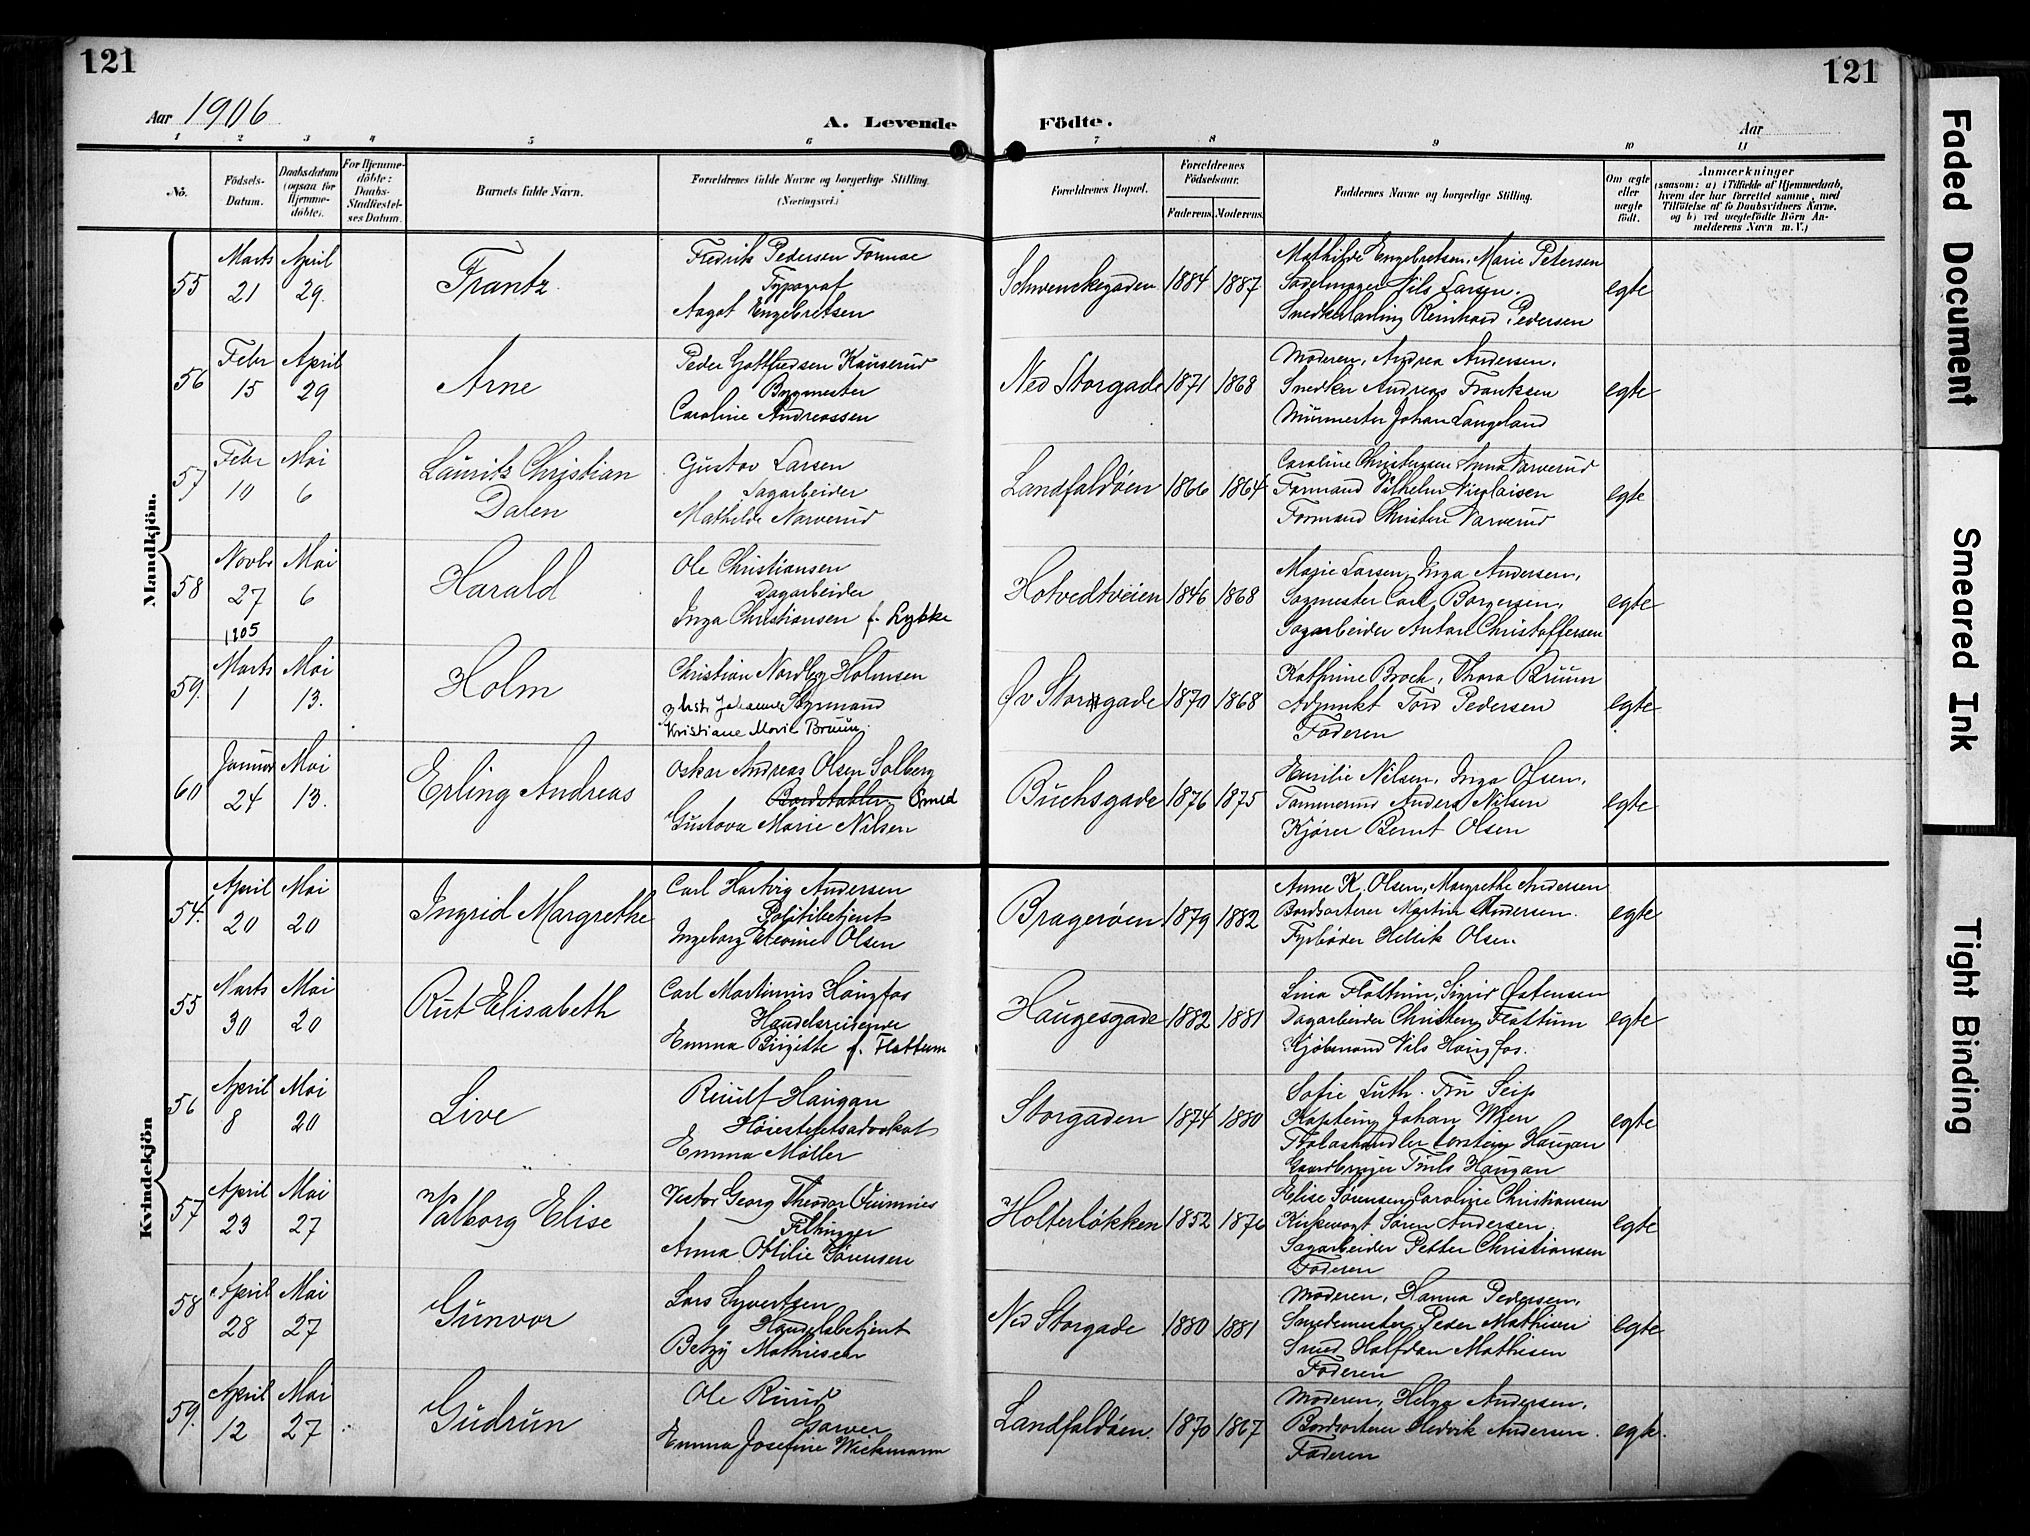 121
121
Aar 1906
A. Levende Födte.
Aar
1 2 3 4 5 6 7 8 9 10 11
No.
Födsels-Datum.
Daabsdatum (ogsaa for Hjemmedöbte).
For Hjemmedöbte: Daabs-Stadfæstelses Datum.
Barnets fulde Navn.
Forældrenes fulde Navne og borgerlige Stilling. (Næringsvei.)
Forældrenes Bopæl.
Forældrenes Födselsaar.
Faderens. Moderens.
Faddernes Navne og borgerlige Stilling.
Om ægte eller uægte födt.
Anmærkninger
(saasom: a) i Tilfælde af Hjemmedaab, hvem der har forrettet samme, med Tilföielse af to Daabsvidners Navne, og b) ved uægtefödte Börn Anmelderens Navn m. V.)
Mandkjön.
55 Marts 21 April 29. Frantz
Fredrik Pedersen Formoe
Typograf
Aagot Engebretsen
Schwenckegaden 1884 1887
Mathilde Engebretsen, Marie Petersen
Sadelmager Nils Larsen.
Snedkerlærling Reinhard Pedersen
egte
56 Febr 15 April 29 Arne
Peder Gotthedsen
Bygmester
Caroline Andreassen
Ned Storgade 1871 1868
Moderen, Andrea Andersen,
Snedker Andreas Franksen
Murmester Johan Langeland
egte
57 Febr 10 Mai 6 Laurits Christian
Dalen
Gustav Larsen
Sagarbeider
Mathilde Narverud
Landfaldøen 1866 1864
Caroline Christensen Anna Narverud
Formand Vilhelm Nicolaisen
Formand Christen Narverud
egte
58 Novbr 27 1905 Mai 6 Harald
Ole Christiansen
Dagarbeider
Inga Christiansen f. Lykke
Hotvedtveien 1846 1868
Marie Larsen, Inga Andersen,
Sagmester Carl Borgersen,
Sagarbeider Anton Christoffersen
egte
59. Marts 1 Mai 13. Holm
Christian Nordby Holmsen
Styrmand
Kristiane Marie Bruun
Øv Storgade 1870 1868
Kathrine Broch, Thora Bruun
Adjunkt Tord Pedersen
Faderen
egte
60 Januar 24 Mai 13. Erling Andreas
Oskar Andreas Olsen Solberg
Bordstabler Smed
Gustava Marie Nilsen
Buchsgade 1876 1875
Emilie Nilsen, Inga Olsen,
Tømmermd Anders Nilsen
Kjører Bernt Olsen
egte
Kvindekjön
54. April 20 Mai 20 Ingrid Margrethe
Carl Hartvig Andersen
Politibetjent
Ingeborg Elevine Olsen
Bragerøen 1879 1882
Anne K. Olsen, Margrethe Andersen
Bordsorterer Martin Andersen.
Fyrbøder Hellik Olsen
egte
55 Marts 30 Mai 20 Rut Elisabeth
Carl Martinius Haugfos
Handelsreisende
Emma Birgitte f. Flattum
Haugesgade 1882 1881
Lina Flattum, Sigrid Østensen
Dagarbeider Christen Flattum
Kjøbmand Nils Haugfos.
egte
56 April 8 Mai 20 Live
Reiulf Haugan
Høiesteretsadvokat
Emma Møller
Storgaden 1874 1880
Sofie Luth. Fru Seip
Kaptein Johan Wien
Tobakshandler Torsten Haugan
Gaardbruger Truls Haugan
egte
57 April 23 Mai 27 Valborg Elise
Victor Georg Theodor
Filhugger
Anna Ottilie Sørensen
Holterløkken 1852 1876
Elise Sørensen, Caroline Christiansen
Kirkevogt Søren Andersen,
Sagarbeider Petter Christiansen
Faderen
egte
58 April 28 Mai 27 Gunvor
Lars Syvertsen
Handelsbetjent
Betzy Mathiesen
Ned Storgade 1880 1881
Moderen, Hanna Pedersen,
Smedemester Peder Mathisen
Smed Halfdan Mathisen
Faderen
egte
59. April 12 Mai 27 Gudrun
Ole Ruud
Garver
Emma Josefine Wickmann
Landfaldøen. 1870 1867
Moderen, Helga Andersen,
Bordsorterer Hedvik Andersen
Faderen
egte.
Faded Document
Smeared Ink
Tight Binding